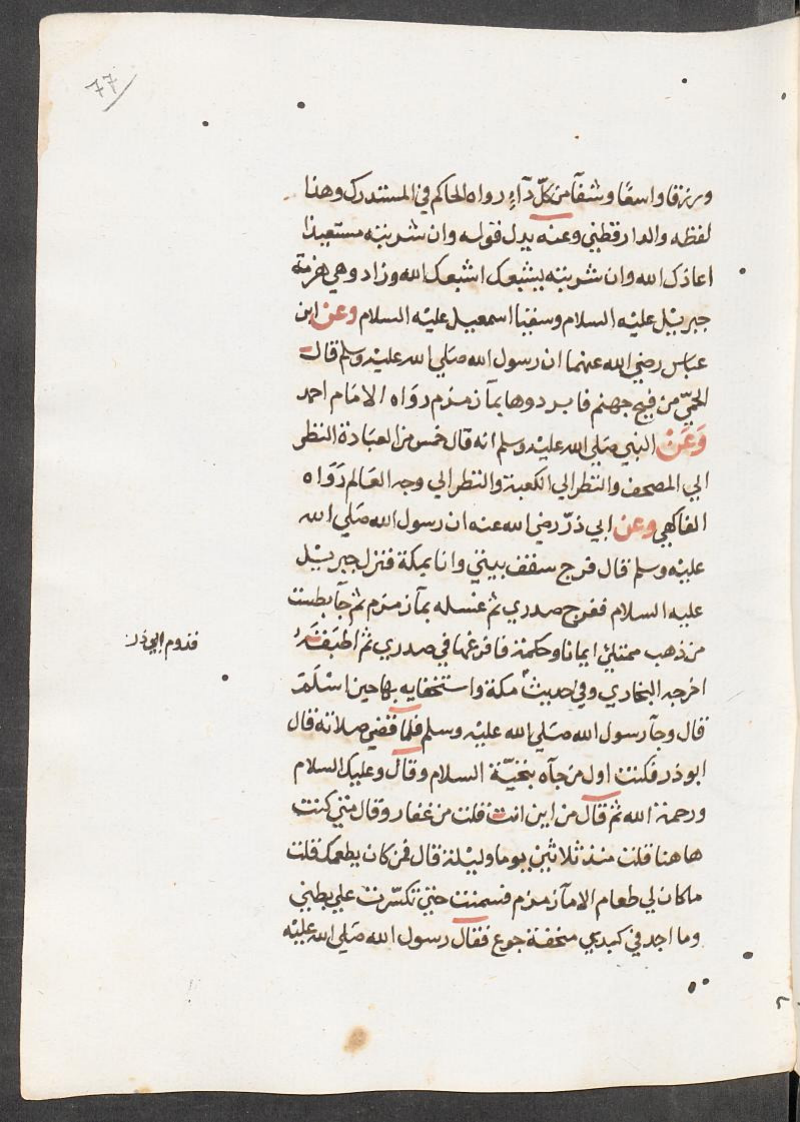 ٧٧
ورزقا واسعًا وشفآمن كلّ دآءٍ رواه الحاكم في المستدرك وهذا
لفظه والدارقطني وعنه بدل قوله وان شربته مستعيذا
اعاذك الله وان شربته ليشبعك اشبعك الله وزاد وهي هزمة
جبريل عليه السلام وسقيا اسمعيل عليه السلام وعن ابن
عباس رضي الله عنهما ان رسول الله صلي الله عليه وسلم قال
الحمّي من فيح جهنم فابردوها بمآ زمزم رواه الامام احمد
وَعَنْ النبي صلي الله عليه وسلم انه قال خمس من العبادة النظر
الي المصحف والنظر الي الكعبة والنظر الي وجه العالم رَوَاه
الفاكهي وعن ابي ذرّ رضي الله عنه ان رسول الله صلي الله
عليه وسلم قال فرج سقف بيتي وانا بمكة فنزل جبريل
عليه السلام ففرج صدري ثم غسله بمآ زمزم ثم جآ بطست
من ذهب ممتلئ ايمانا وحكمة فافرغها في صدري ثم اطبقَهُ
قدوم ابي ذر
اخرجه البخاري وفي حديث مكة واستخفايه بها حين اسْلَمَ
قال وجآ رسول الله صلي الله عليه وسلم فلما قضي صلاته قال
ابوذر فكنت اول من جآه بتحيّة السلام وقال وعليك السلام
ورحمة الله ثم قال من اين انت قلت من غفار وقال متي كنت
هاهنا قلت منذ ثلاثين يوما وليلة قال فمن كان يطعمك قلت
ماكان لي طعام الا مآ زمزم فسمنت حتي تكسّرت علي بطني
وما اجد في كبدي سخفة جوع فقال رسول الله صلي الله عليه